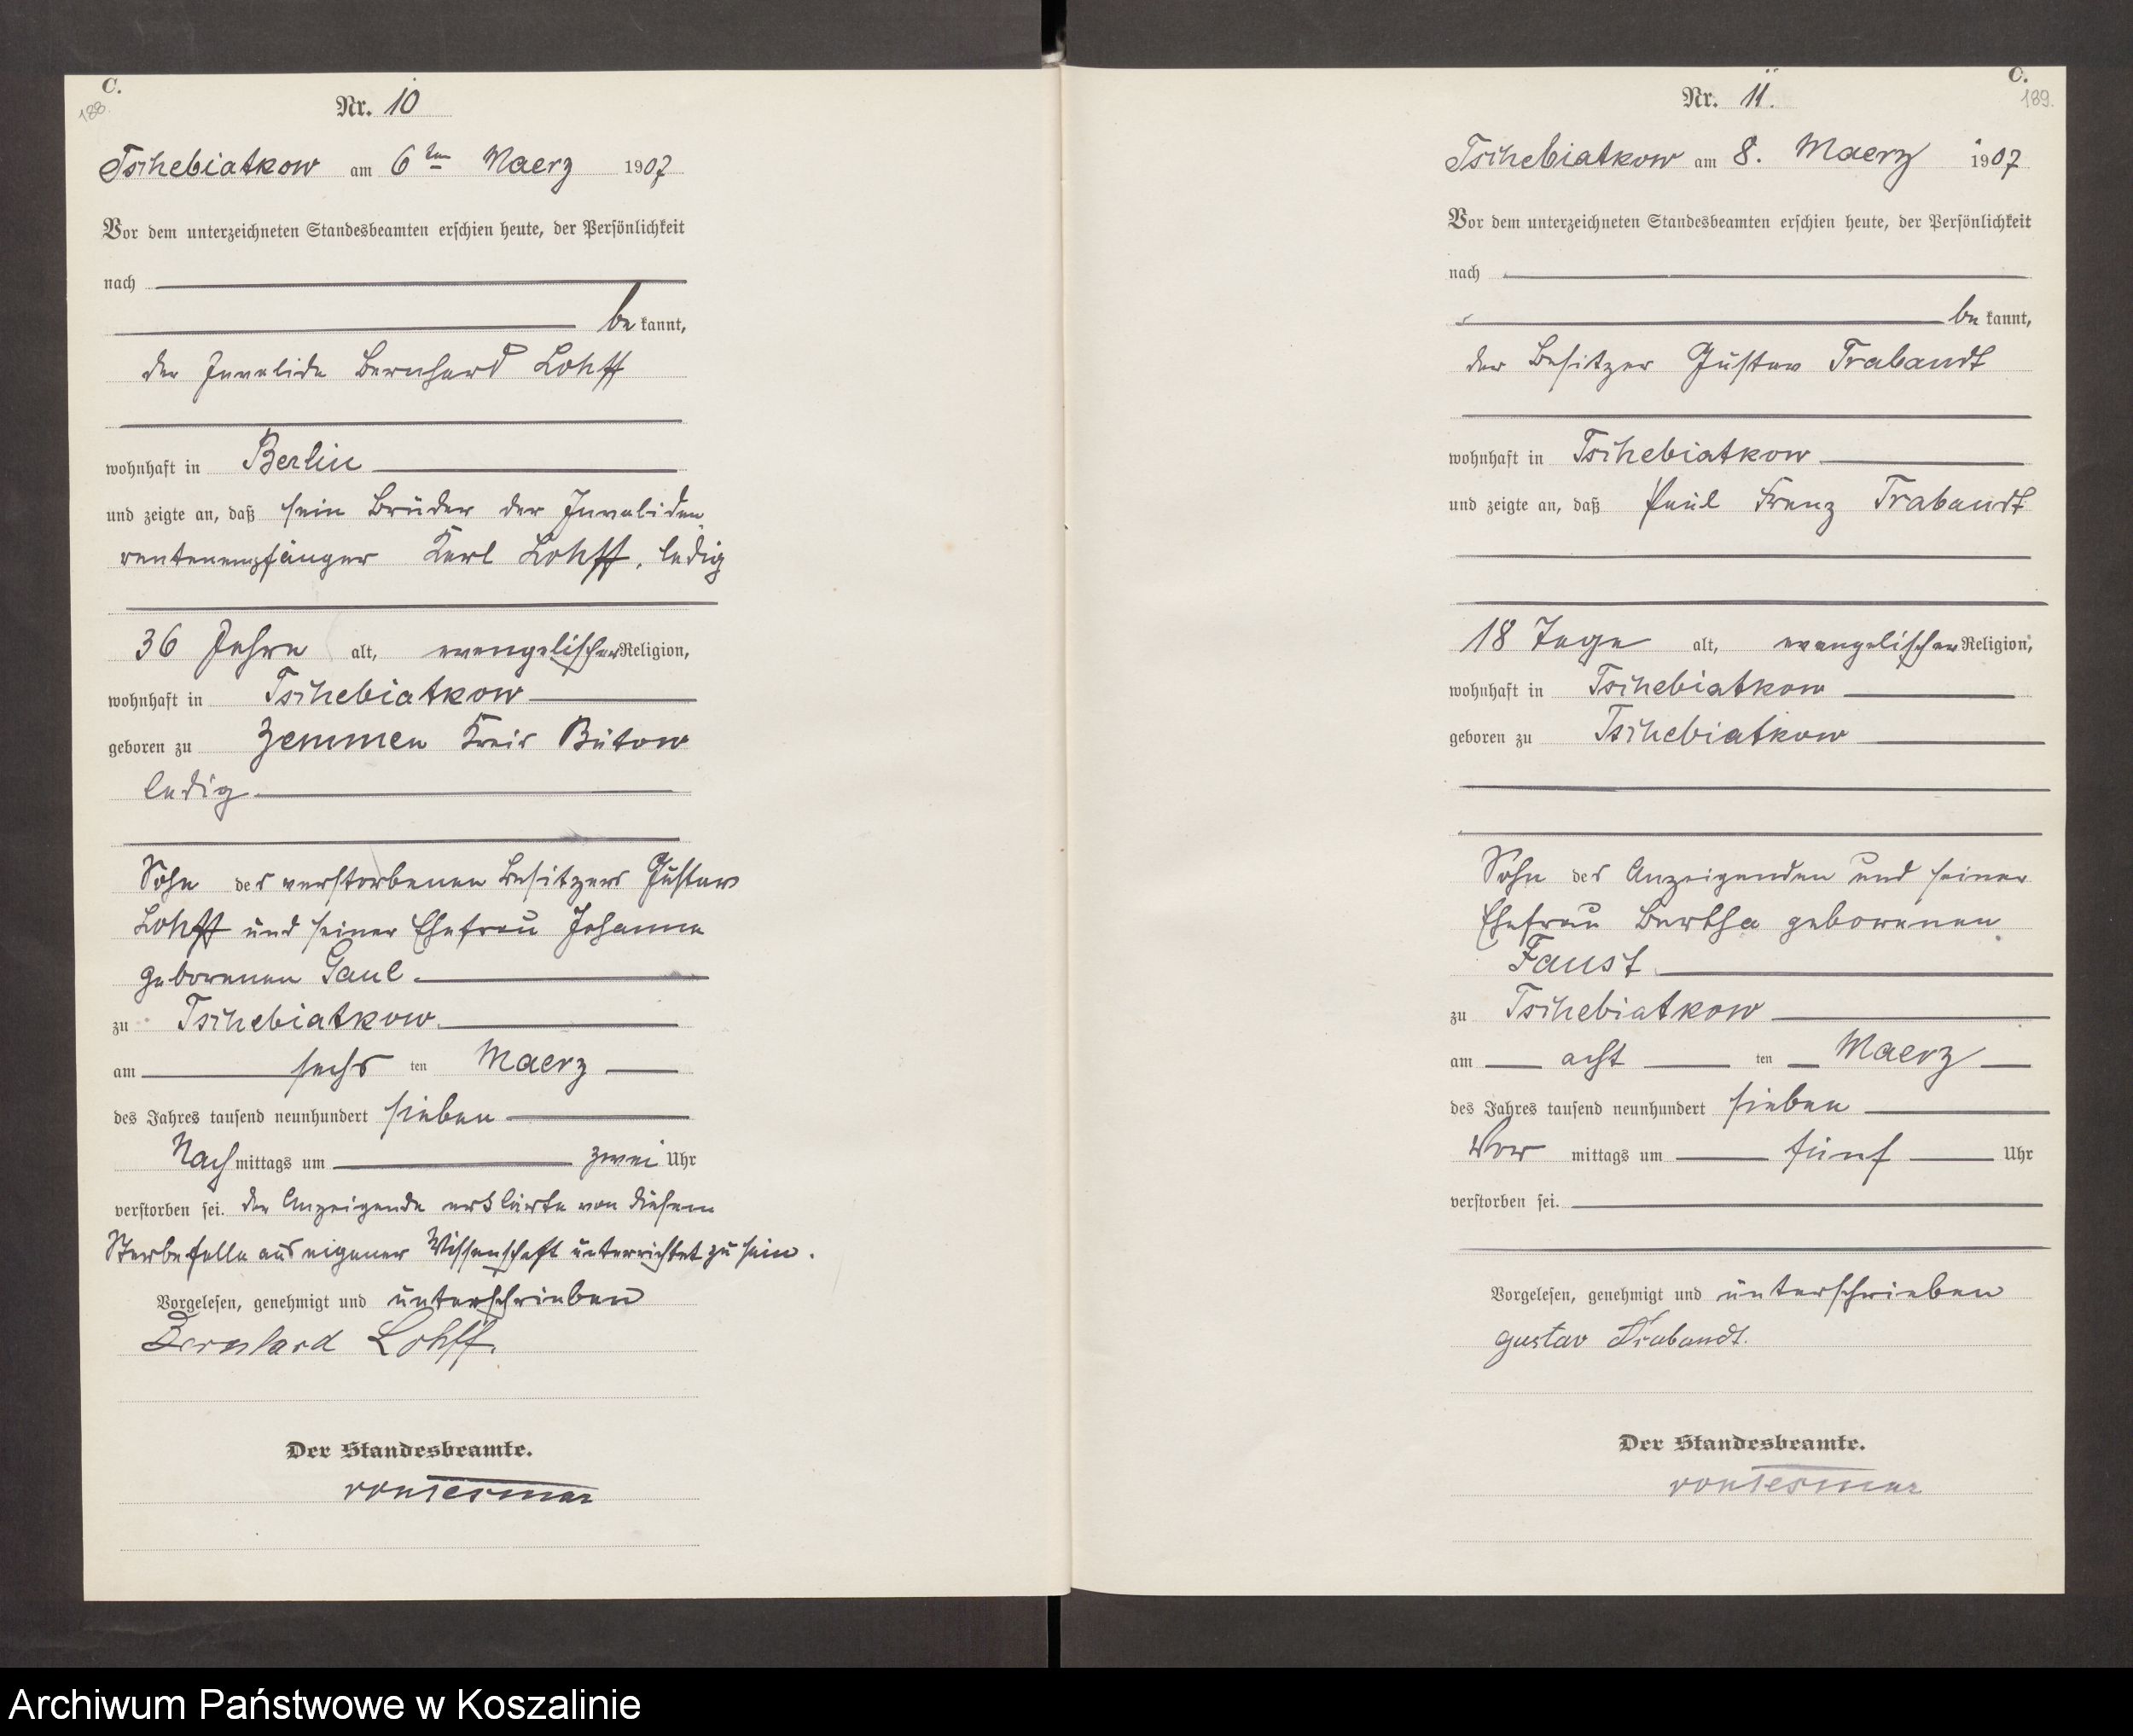 C.
188.
Nr. 10
Tschebiatkow am 6ten Maerz 1907
Vor dem unterzeichneten Standesbeamten erschien heute, der Persönlichkeit
nach
be kannt,
der Invalide Bernhard Lohff
wohnhaft in Berlin
und zeigte an, daß sein Brüder der Invaliden
rentenempfänger Karl Lohff, ledig
36 Jahre alt, evangelischer Religion,
wohnhaft in Tschebiatkow
geboren zu Zemmen Kreis Bütow
ledig
Sohn des verstorbenen Besitzers Gustav
Lohff und seiner Ehefrau Johanna
geborenen Gaul
zu Tschebiatkow
am sechs ten Maerz
des Jahres tausend neunhundert sieben
Nach mittags um zwei Uhr
verstorben sei. der Anzeigende erklärte von diesem
Sterbefalle aus eigener Wissenschaft unterrichtet zu sein.
Vorgelesen, genehmigt und unterschrieben
Bernhard Lohff.
Der Standesbeamte.
von Tesmar
C.
189.
Nr. 11.
Tschebiatkow am 8. Maerz 1907
Vor dem unterzeichneten Standesbeamten erschien heute, der Persönlichkeit
nach
be kannt,
der Besitzer Gustav Trabandt
wohnhaft in Tschebiatkow
und zeigte an, daß Paul Franz Trabandt
18 Tage alt, evangelischer Religion,
wohnhaft in Tschebiatkow
geboren zu Tschebiatkow
Sohn des Anzeigenden und seiner
Ehefrau Bertha geborenen
Faust
zu Tschebiatkow
am acht ten Maerz
des Jahres tausend neunhundert sieben
Vor mittags um fünf Uhr
verstorben sei.
Vorgelesen, genehmigt und unterschrieben
Gustav Trabandt.
Der Standesbeamte.
von Tesmar
Archiwum Państwowe w Koszalinie